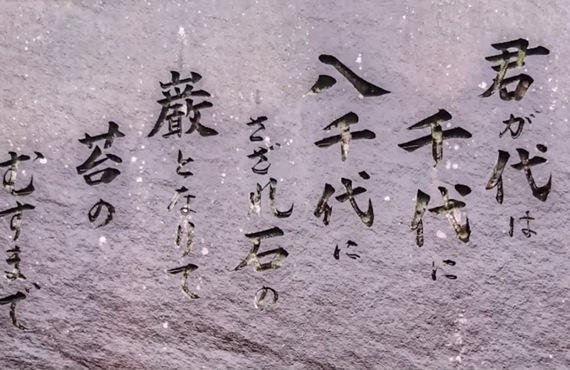 君が代は
千代に
八千代に
さざれ石の
巌となりて
苔の
むすまで